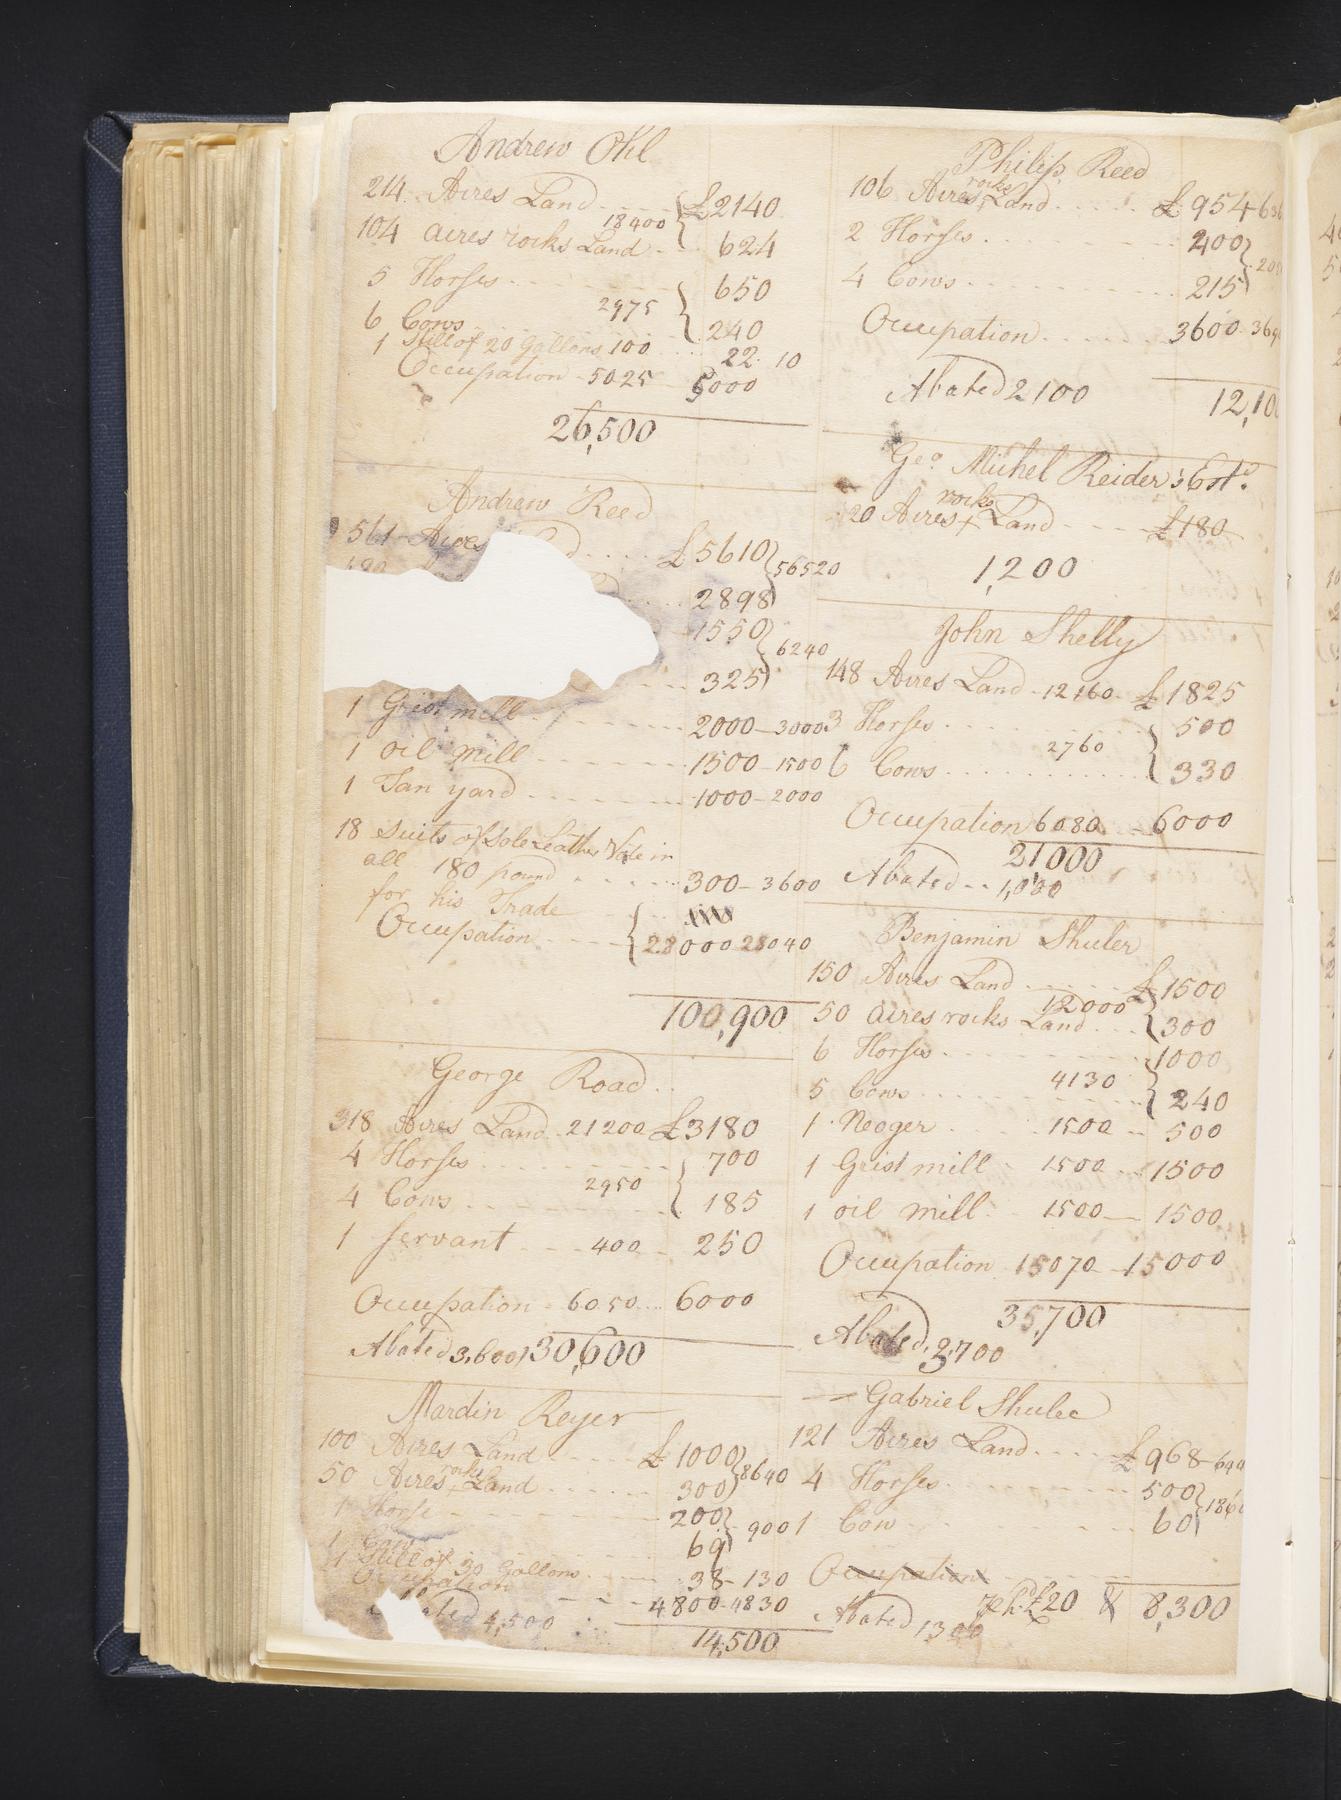 Andrew Ohl
214 Acres Land £2140
18400
104 acres rocks Land 624
5 Horses 650
2975
6 Cows 240
1 Still of 20 Gallons 100 22. 10
Occupation - 5025 5000
26,500
Andrew Reed
561 Acres £5610
56520
2898
1550
6240
325
1 Grist mill 2000 - 3000
1 oil mill 1500 - 1500
1 Tan yard 1000 - 2000
18 Suits of Sole Leather
all 180 pound 300 - 3600
for his Trade
Occupation 28000 28040
100,900
George Road
318 Acres Land 21200 £3180
4 Horses 700
2950
4 Cows 185
1 Servant 400 250
Occupation - 6050 6000
Abated 3,600 30,600
Mardin Reyer
100 Acres Land £1000
8640
50 Acres rocks Land 300
1 Horse 200
900
1 Cow 69
1 Still of 30 Gallons 38 - 130
Occupation 4800 - 4830
4,500
14,500
Philip Reed
106 Acres rocks Land £954
2 Horses 400
4 Cows 215
Occupation 3600
Abated 2100 12,10
Geo. Michel Reider's Est.
20 Acres rocks Land £180
1,200
John Shelly
148 Acres Land - 12160 £1825
3 Horses 500
2760
6 Cows 330
Occupation 6080 6000
21000
Abated 1,000
Benjamin Shuler
150 Acres Land £1500
12000
50 acres rocks Land 300
6 Horses 1000
4130
5 Cows 240
1 Neoger 1500 500
1 Grist mill 1500 1500
1 oil mill 1500 1500
Occupation 15070 15000
35,700
Abated, 2,700
Gabriel Shuler
121 Acres Land £968
4 Horses 500
1 Cow 60
Occupation
£20 8,300
Abated 1300